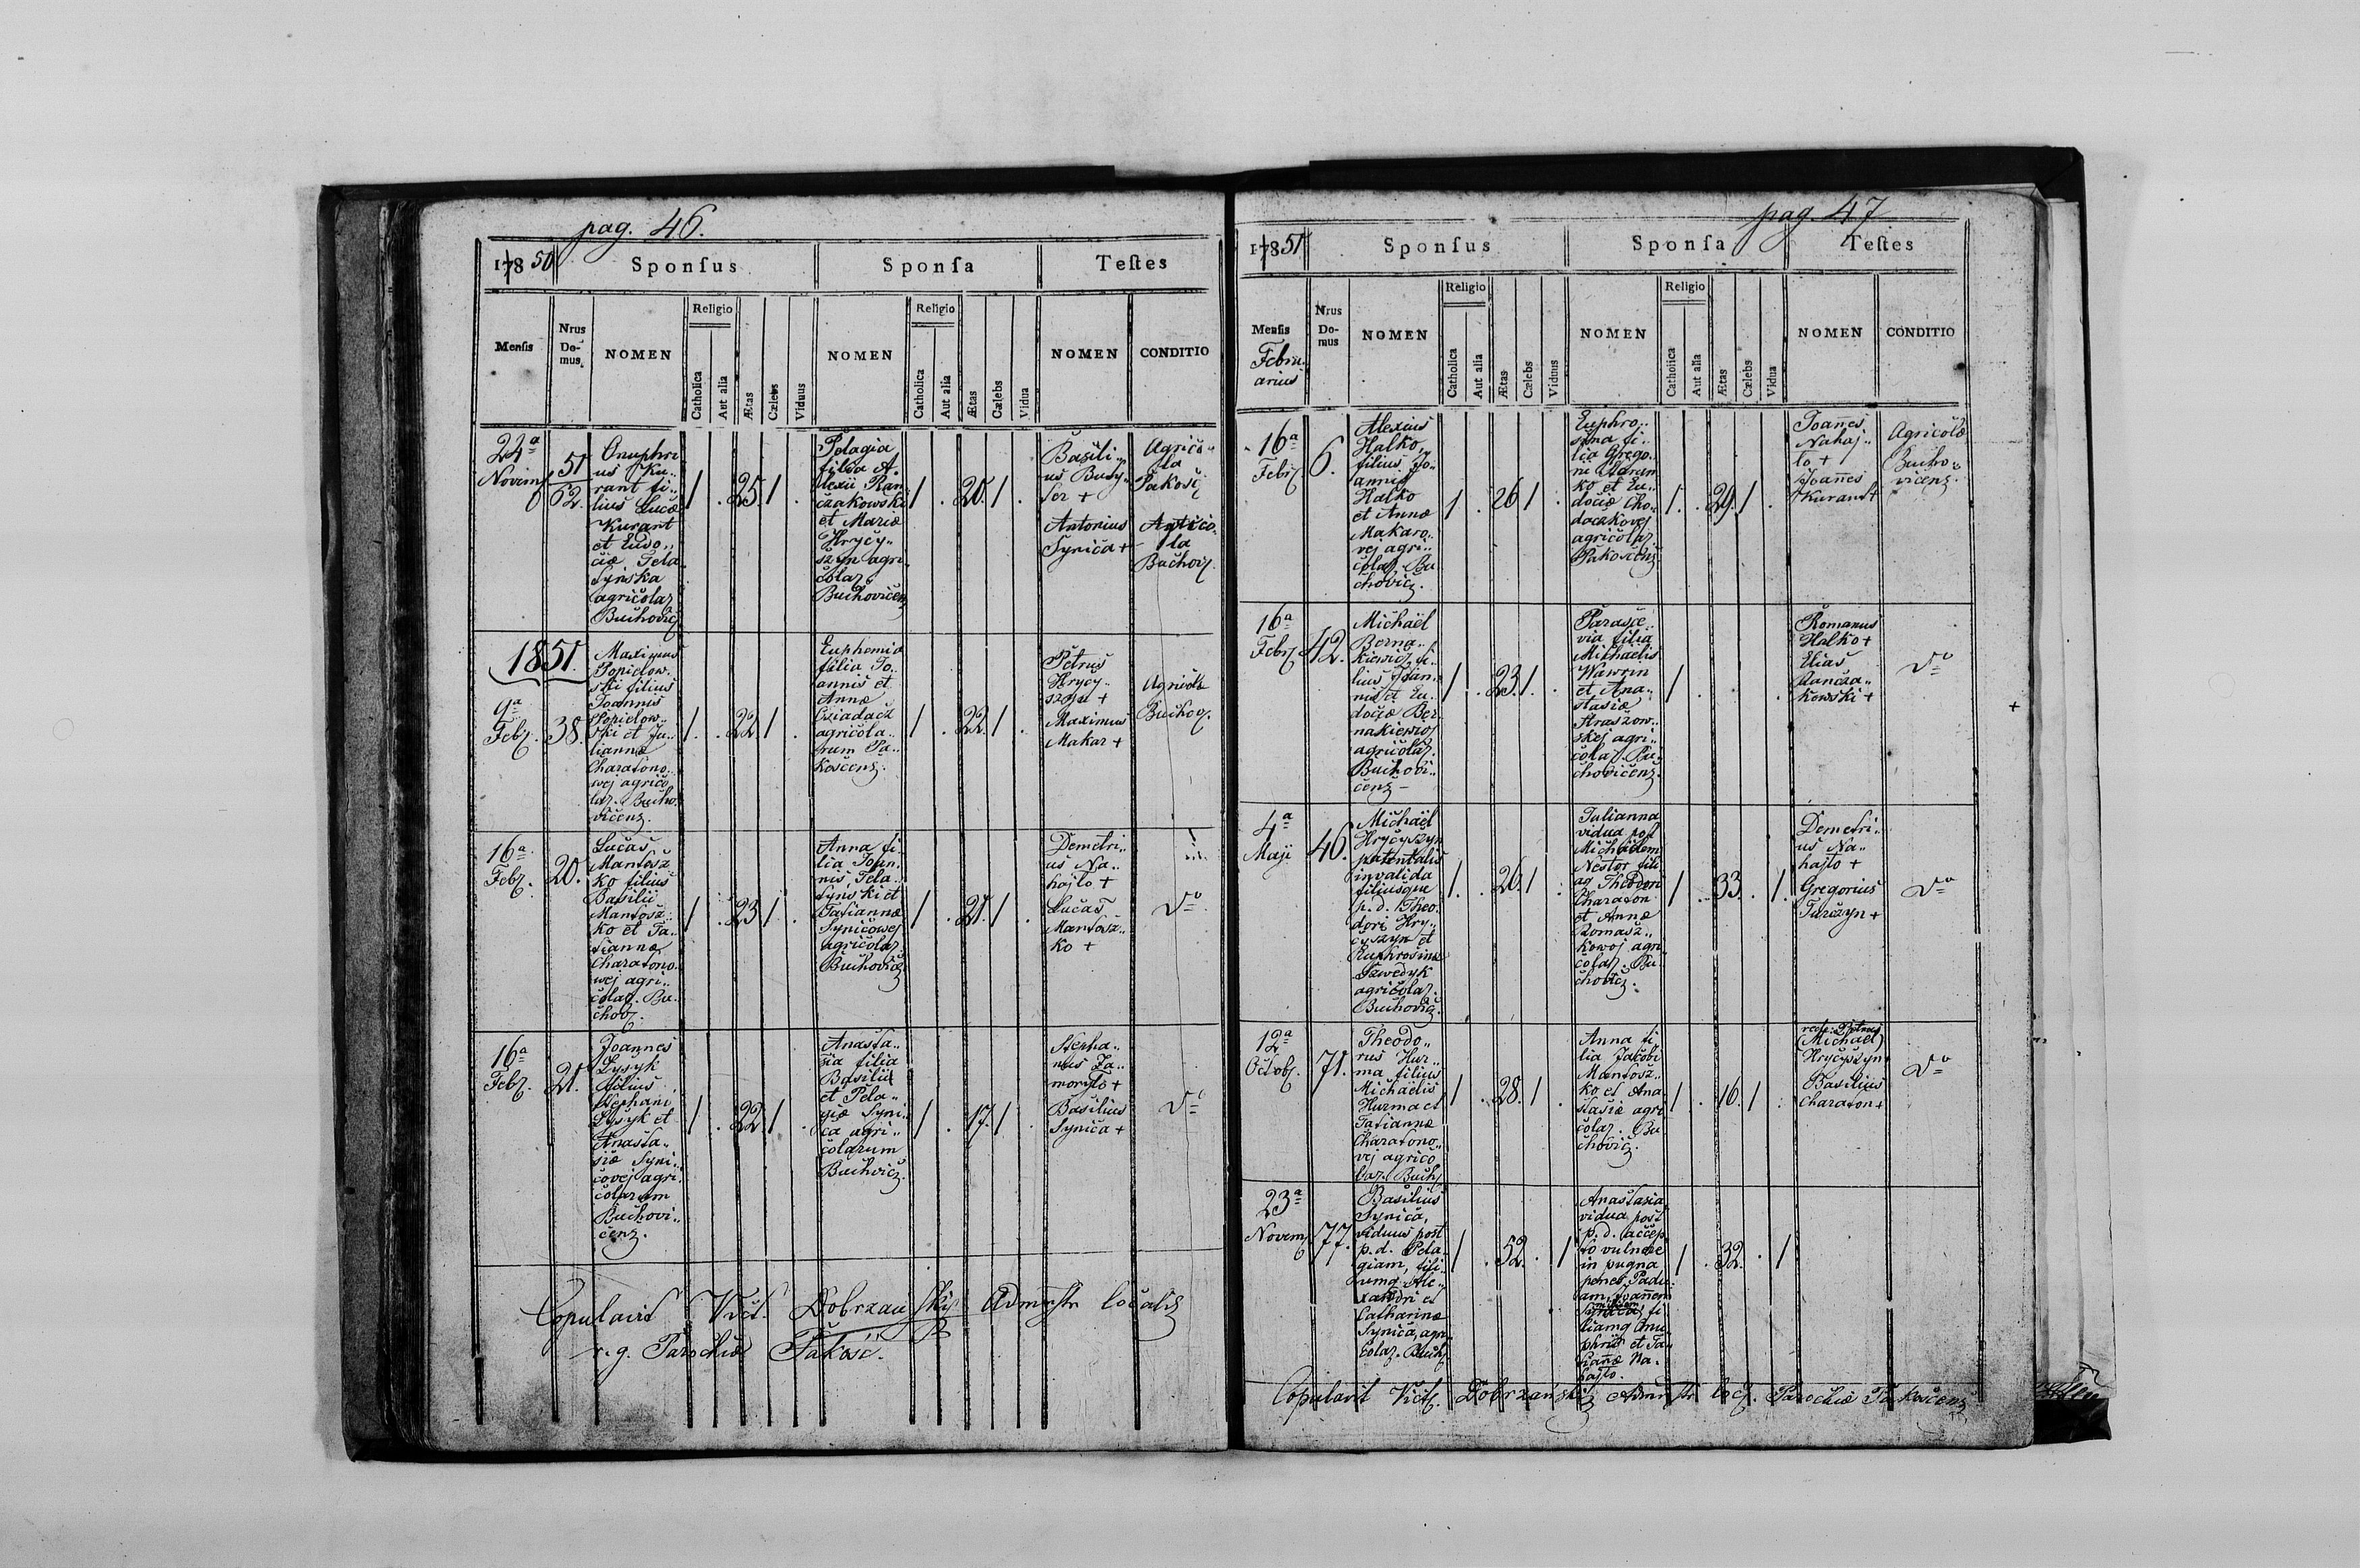 pag. 46.
178 50
Sponsus
Sponsa
Testes
Mensis
Nrus Do- mus.
NOMEN
Religio
Catholica
Aut alia
Ætas
Cælebs
Viduus
NOMEN
Religio
Catholica
Aut alia
Ætas
Cælebs
Vidua
NOMEN
CONDITIO
24a
Novem
51
62.
Onuphri
us Ku„
rant fi„
lius Lucæ
Kurant
et Eudo„
ciæ Tela
Synska
agricolar
Buchovic
1 . 25. 1 .
Pelagia
filia A„
lexii Ran
czakowski
et Mariæ
Hrycy„
szyn agri
colar
Buchovicen
1 . 20. 1 .
Basili„
us Busy„
Ser +
Antonius
Synica +
Agrico„
la
Pakosc
Agrico
la
Buchov
1851.
9a
Feb. 38.
Maximus
Popielow„
ski filius
Joannis
Popielow„
ski et Ju„
liannæ
Charatono„
wej agrico
lar. Bucho„
vicens.
1. . 22. 1 .
Euphemia
filia Jo„
annis et
Annæ
Csiadacz
agricola„
rum Pa„
koscens.
1 . 22. 1 .
Petrus
Hrycy„
szyn +
Maximus
Makar +
Agricolæ
Buchov.
16a
Feb. 20.
Lucas
Mantosz
ko filius
Basilii
Mantosz„
ko et Ta„
tiannæ
Charatono„
wej agri„
colar. Bu„
chov.
1 . 23 1 .
Anna fi„
lia Joan„
nis Tela„
Synski et
Tatiannæ
Synicowej
agricolar
Buchovic
1 . 21. 1 .
Demetri„
us Na„
hajlo +
Lucas
Mantosz„
ko +
Do
16a
Feb. 21.
Joannes
Lysyk
filius
Stephani
Lysyk et
Anasta„
siæ Syni„
covej agri„
colarum
Buchovi„
cens.
1 . 22. 1 .
Anasta„
sia filia
Basilii
et Pela„
giæ Syni„
ca agri„
colarum
Buchvic.
1 . 17. 1 .
Stepha„
nus Za„
morylo +
Basilius
Synica +
Do
Copulavit Vict. Dobrzański Adminstr localis
r. g. Parochiæ Pakosc.
pag. 47
1785 51
Sponsus
Sponsa
Testes
Mensis
Febru„
arius
Nrus Do- mus
NOMEN
Religio
Catholica
Aut alia
Ætas
Cælebs
Viduus
NOMEN
Religio
Catholica
Aut alia
Ætas
Cælebs
Vidua
NOMEN
CONDITIO
16a
Feb 6.
Alexius
Halko,
filius Jo„
annis
Halko
et Annæ
Makaro„
vej agri„
colar. Bu
chovic.
1 . 26 1 .
Euphro„
sina fi„
lia Grego„
rii
ko et Eu„
dociæ Cho„
daczkovej
agricolar
Pakoscens
1. . 29. 1 .
Joannes
Nahaj„
lo +
Joannes
Kurant +
Agricolæ
Bucho„
vicens.
16a
Feb 42.
Michael
Berna„
kiewicz fi„
lius Joan„
nis et Eu„
dociæ Ber
nakiewicz
agricolar.
Buchovi„
cens –
1 . 23 1. .
Parasce„
via filia
Michaelis
Wawrin
et Ana„
stasiæ
Straszow„
skej agri„
colar. Bu„
chovicens.
1 . .
Romanus
Halko +
Elias
Rancza„
kowski +
Do
4a
Maji 46.
Michael
Hrycyszyn
patentalis
invalida
filiusque
p. d. Theo„
dori Hry„
cyszyn et
Euphrosinæ
Szwedyk
agricolar.
Buchovic.
1 . 26. 1 .
Julianna
vidua post
Michaelem
Nestor fili
aq Theodori
Charaton
et Annæ
Romasz„
kowoj agri
colar. Bu
chovic.
1 . 33. . 1.
Demetri„
us Na„
hajlo +
Gregorius
Turczyn +
Do
12a
Octob. 71.
Theodo„
rus Hur„
ma filius
Michaelis
Hurma et
Tatiannæ
Charatono„
vej agrico
lar. Buch
1 . 28. 1 .
Anna fi„
lia Jacobi
Mantosz„
ko et Ana
stasiæ agri
colar. Bu
chovic.
1 . 16. 1 .
recte: Petrus
(Michael)
Hrycyszyn
Basilius
Charaton +
Do
23a
Novem 77.
Basilius
Synica,
viduus post
p. d. Pela„
giam, fili„
umq Ale„
xandri et
Catharinæ
Synica, agri„
colar. Buch.
1 . 52. . 1
Anastasia
vidua post
p. d. accep
to vulnere
in pugna
penes Padu„
am, Joannem
Synica fi
liamq Onu„
phrii et Ta„
tiannæ Na„
hajlo.
1 . 32. . 1
Copulavit Vict. Dobrzański Admnstr loc. Parochiæ Pakoscens